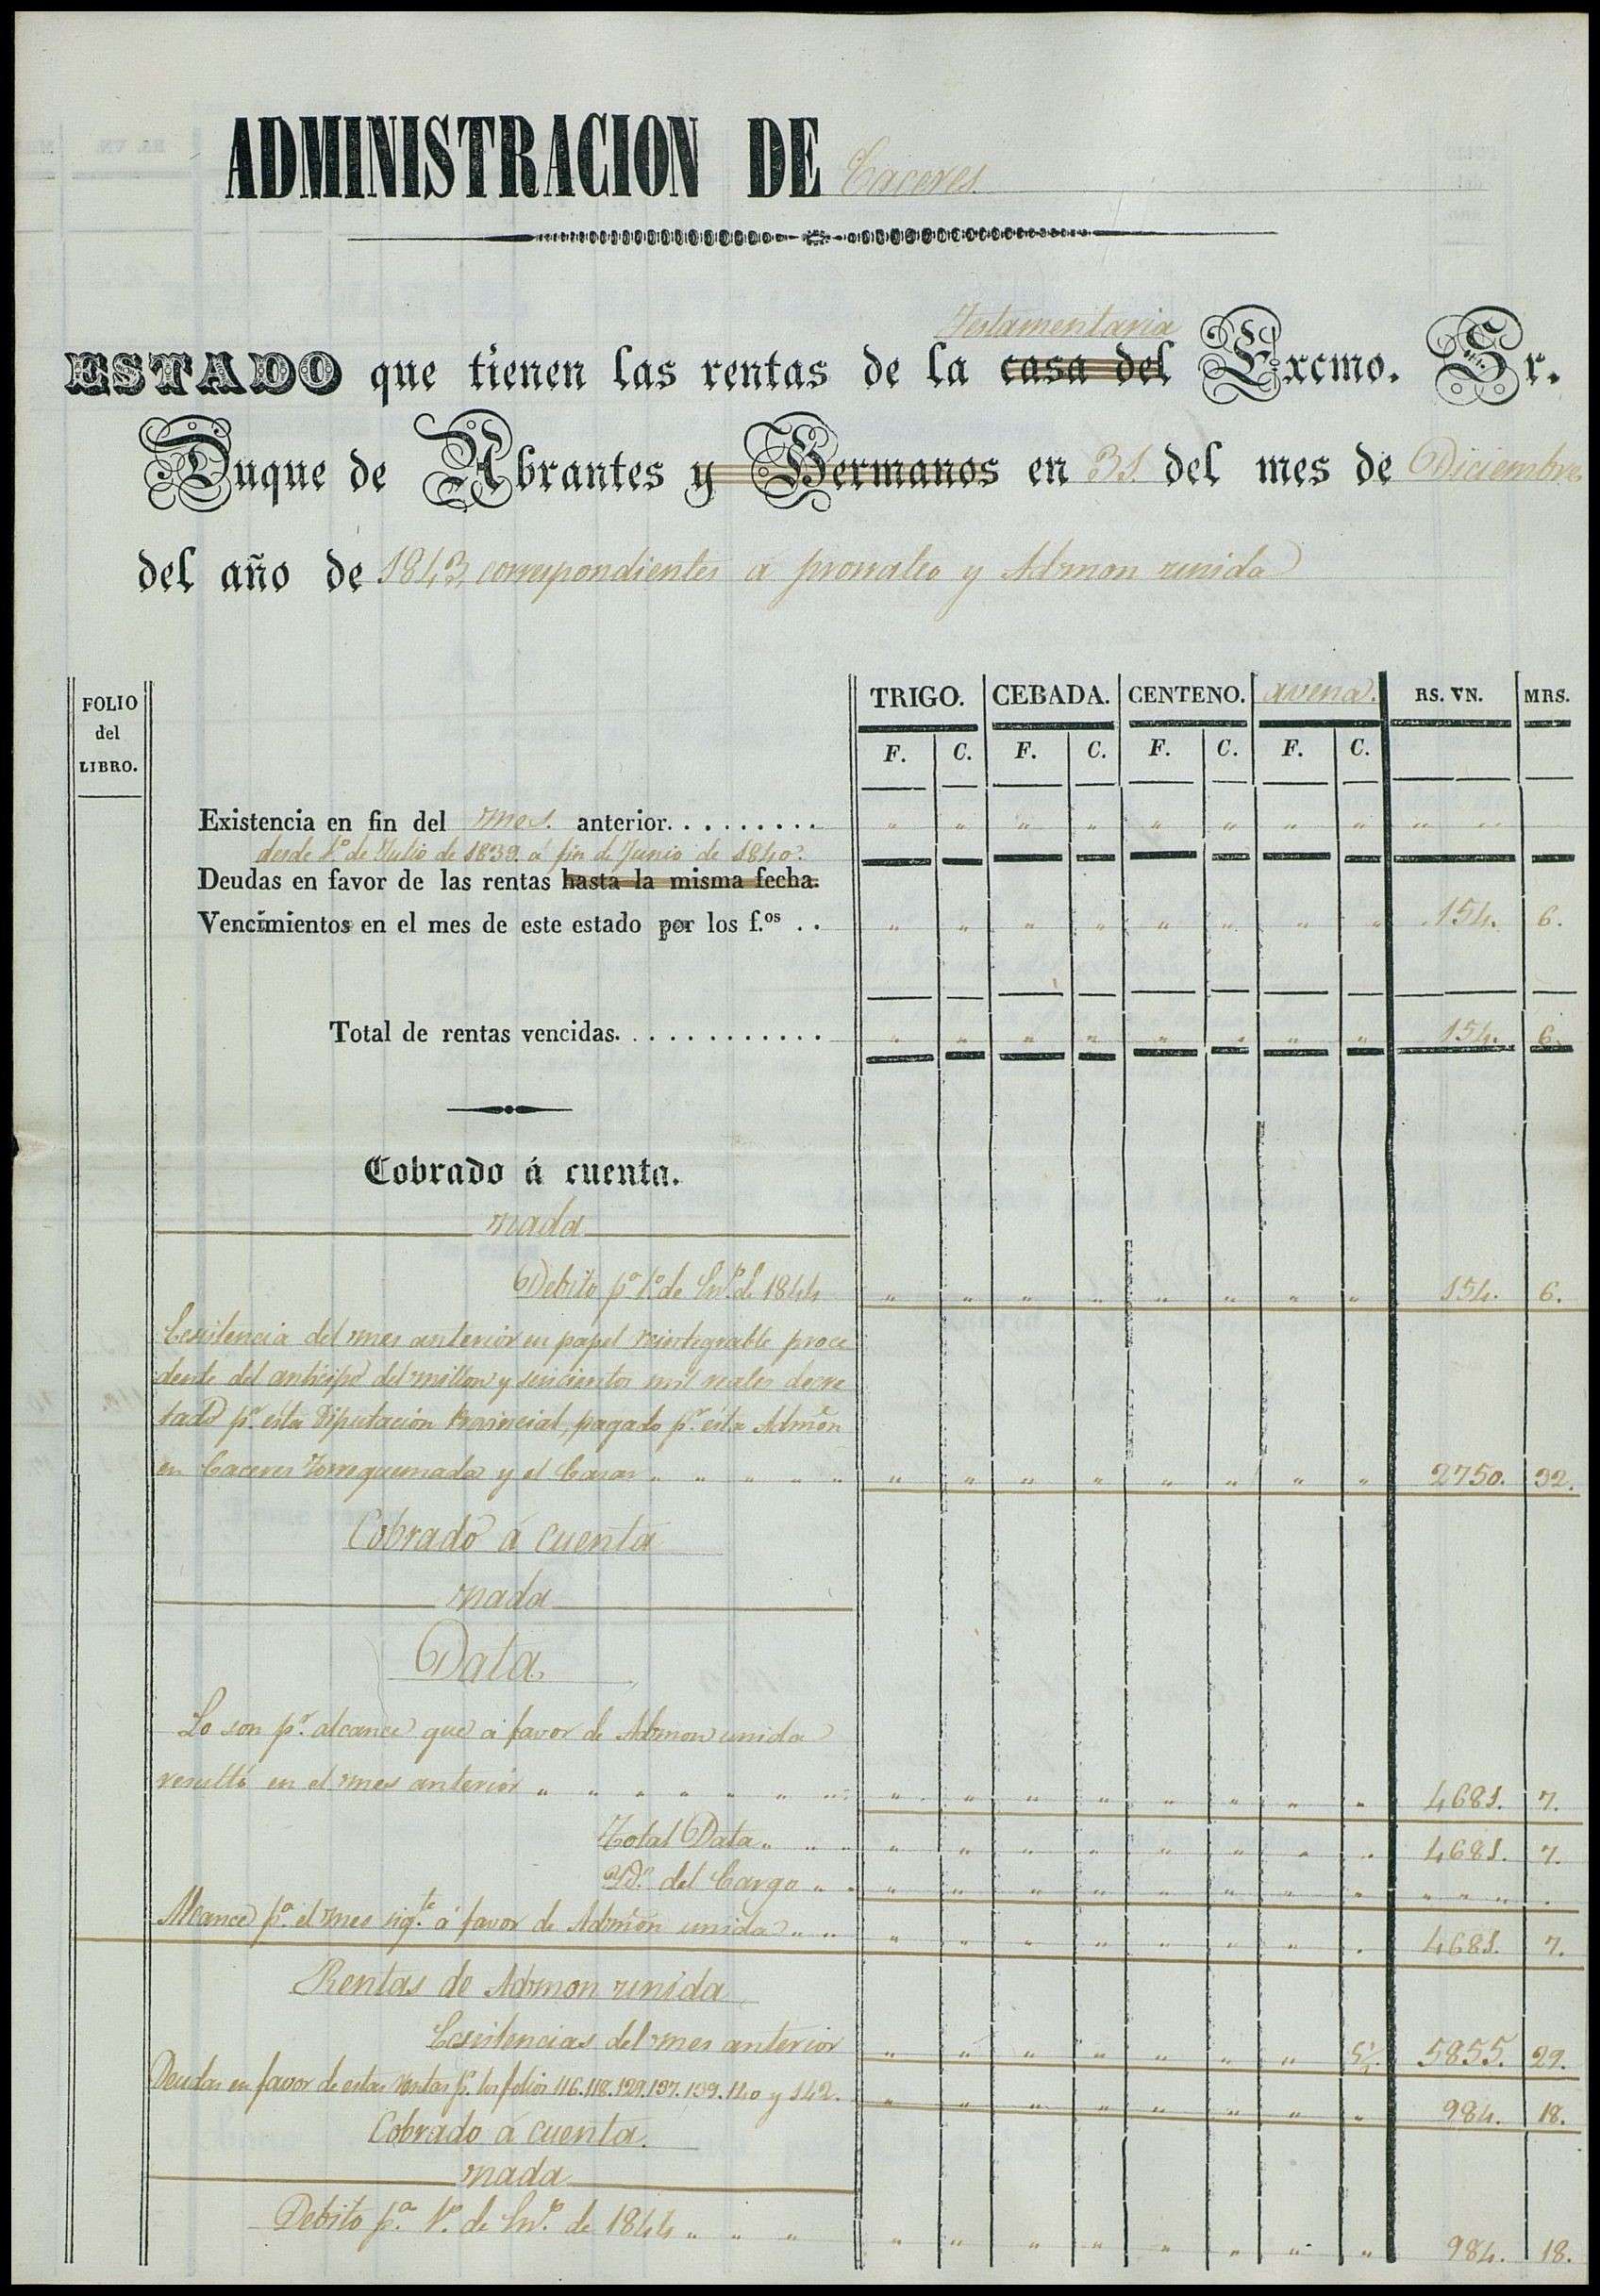 ADMINISTRACION DE Caceres
Testamentaria
ESTADO que tienen las rentas de la casa del Excmo. Sr.
Duque de Abrantes y Hermanos en 31 del mes de Diciembre
del año de 1843 correspondientes á prorrateo y Admon unida
FOLIO del LIBRO.
TRIGO. CEBADA. CENTENO. avena. RS. VN. MRS.
F. C. F. C. F. C. F. C.
Existencia en fin del mes. anterior. . . . . . . . . " " " " " " " " " "
desde 1.º de Julio de 1839 á fin de Junio de 1840.
Deudas en favor de las rentas hasta la misma fecha.
Vencimientos en el mes de este estado por los f.os . . " " " " " " " " 154. 6.
Total de rentas vencidas. . . . . . . . . . . . " " " " " " " " 154. 6.
Cobrado á cuenta.
nada
Debito p.ª 1.º de En.º de 1844 " " " " " " " " 154. 6.
Existencia del mes anterior en papel reintegrable proce
dente del anticipo del millon y seiscientos mil reales decre
tado p.r esta Diputación Provincial, pagado p.r esta Admón
en Caceres Torrequemada y el Casar " " " " " " " " " " " " " 2750. 32.
Cobrado á cuenta
nada
Data
Lo son p.r alcance que á favor de Admon unida
resultó en el mes anterior " " " " " " " " " " " " " " " 4681. 7.
Total Data " " " " " " " " " " " 4681. 7.
Yd. del Cargo " " " " " " " " " " " " " "
Alcance p.ª el mes sig.te á favor de Admón unida " " " " " " " " " " 4681. 7.
Rentas de Admon unida
Existencias del mes anterior " " " " " " " 5855. 29.
Deudas en favor de estas rentas p.r los folios 116. 118. 129. 137. 139. 140 y 142. " " " " " " " " 984. 18.
Cobrado á cuenta.
nada
Debito p.ª 1.º de En.º de 1844 " " " " " " " " " " " 984. 18.